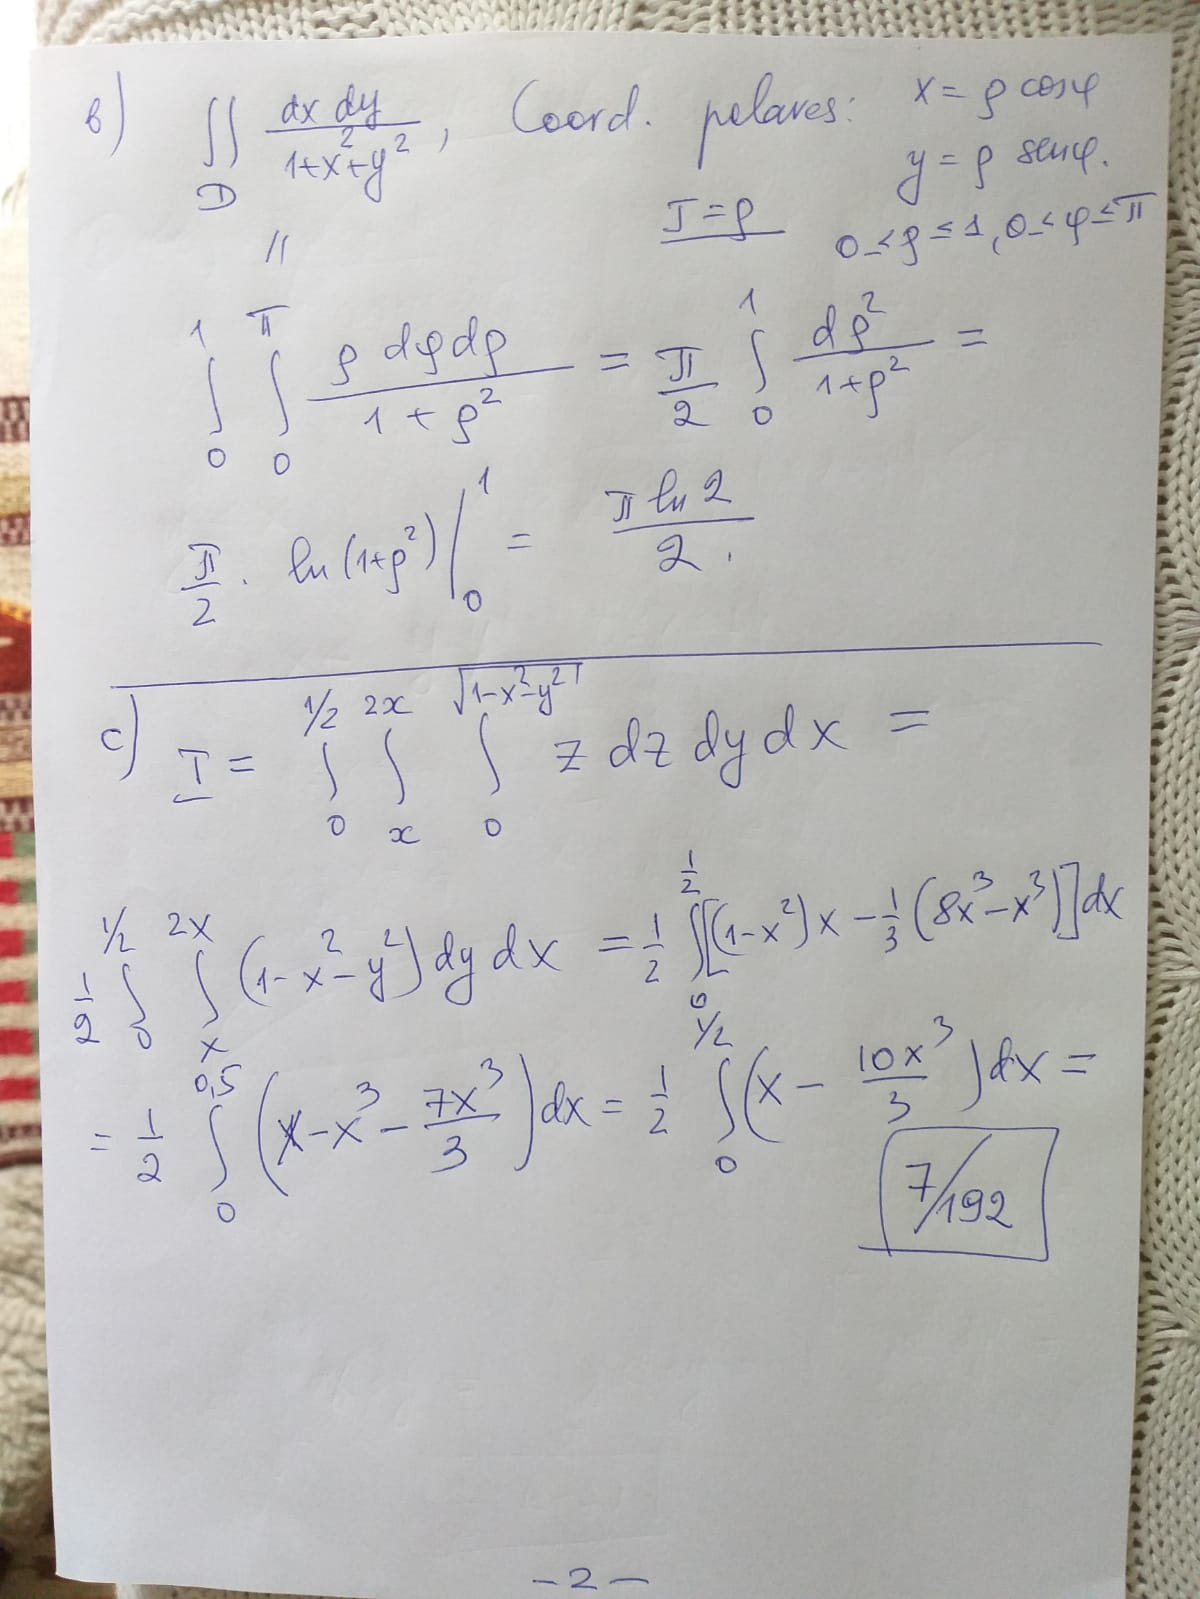 b) ∬_D dx dy / (1+x²+y²), Coord. polares: x = ρ cosφ
y = ρ senφ.
J = ρ 0 ≤ ρ ≤ 1, 0 ≤ φ ≤ π
||
∫₀¹ ∫₀^π ρ dφ dρ / (1 + ρ²) = π/2 ∫₀¹ dρ² / (1+ρ²) =
π/2 · ln(1+ρ²) |₀¹ = π ln 2 / 2.
c) I = ∫₀^{1/2} ∫ₓ^{2x} ∫₀^{√(1-x²-y²)} z dz dy dx =
1/2 ∫₀^{1/2} ∫ₓ^{2x} (1-x²-y²) dy dx = 1/2 ∫₀^{1/2} [(1-x²)x - 1/3 (8x³-x³)] dx
= 1/2 ∫₀^{0,5} (x-x³ - 7x³/3) dx = 1/2 ∫₀^{1/2} (x - 10x³/3) dx =
7/192
- 2 -